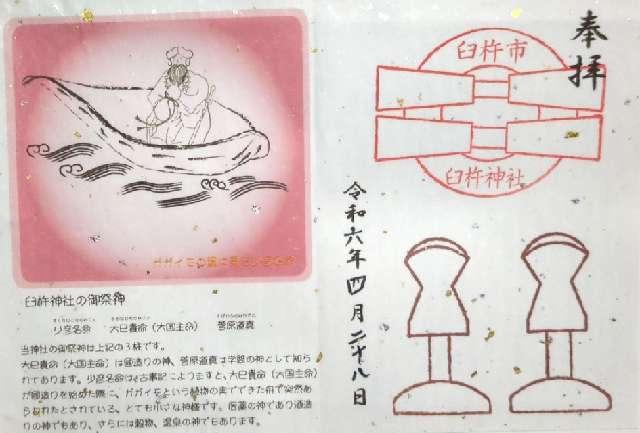 奉拝
臼杵市
臼杵神社
令和六年四月二十八日
臼杵神社の御祭神
少彦名命 大己貴命（大国主命） 菅原道真
当神社の御祭神は上記の3柱です。
大己貴命（大国主命）は国造りの神、菅原道真は学問の神として知ら
れております。少彦名命は古事記によりますと、大己貴命（大国主命）
が国造りを始めた際に、ガガイモという植物の実でできた舟で突然あ
らわれたとされている、とても小さな神様です。医薬の神であり酒造
りの神でもあり、さらには穀物、温泉の神でもあります。